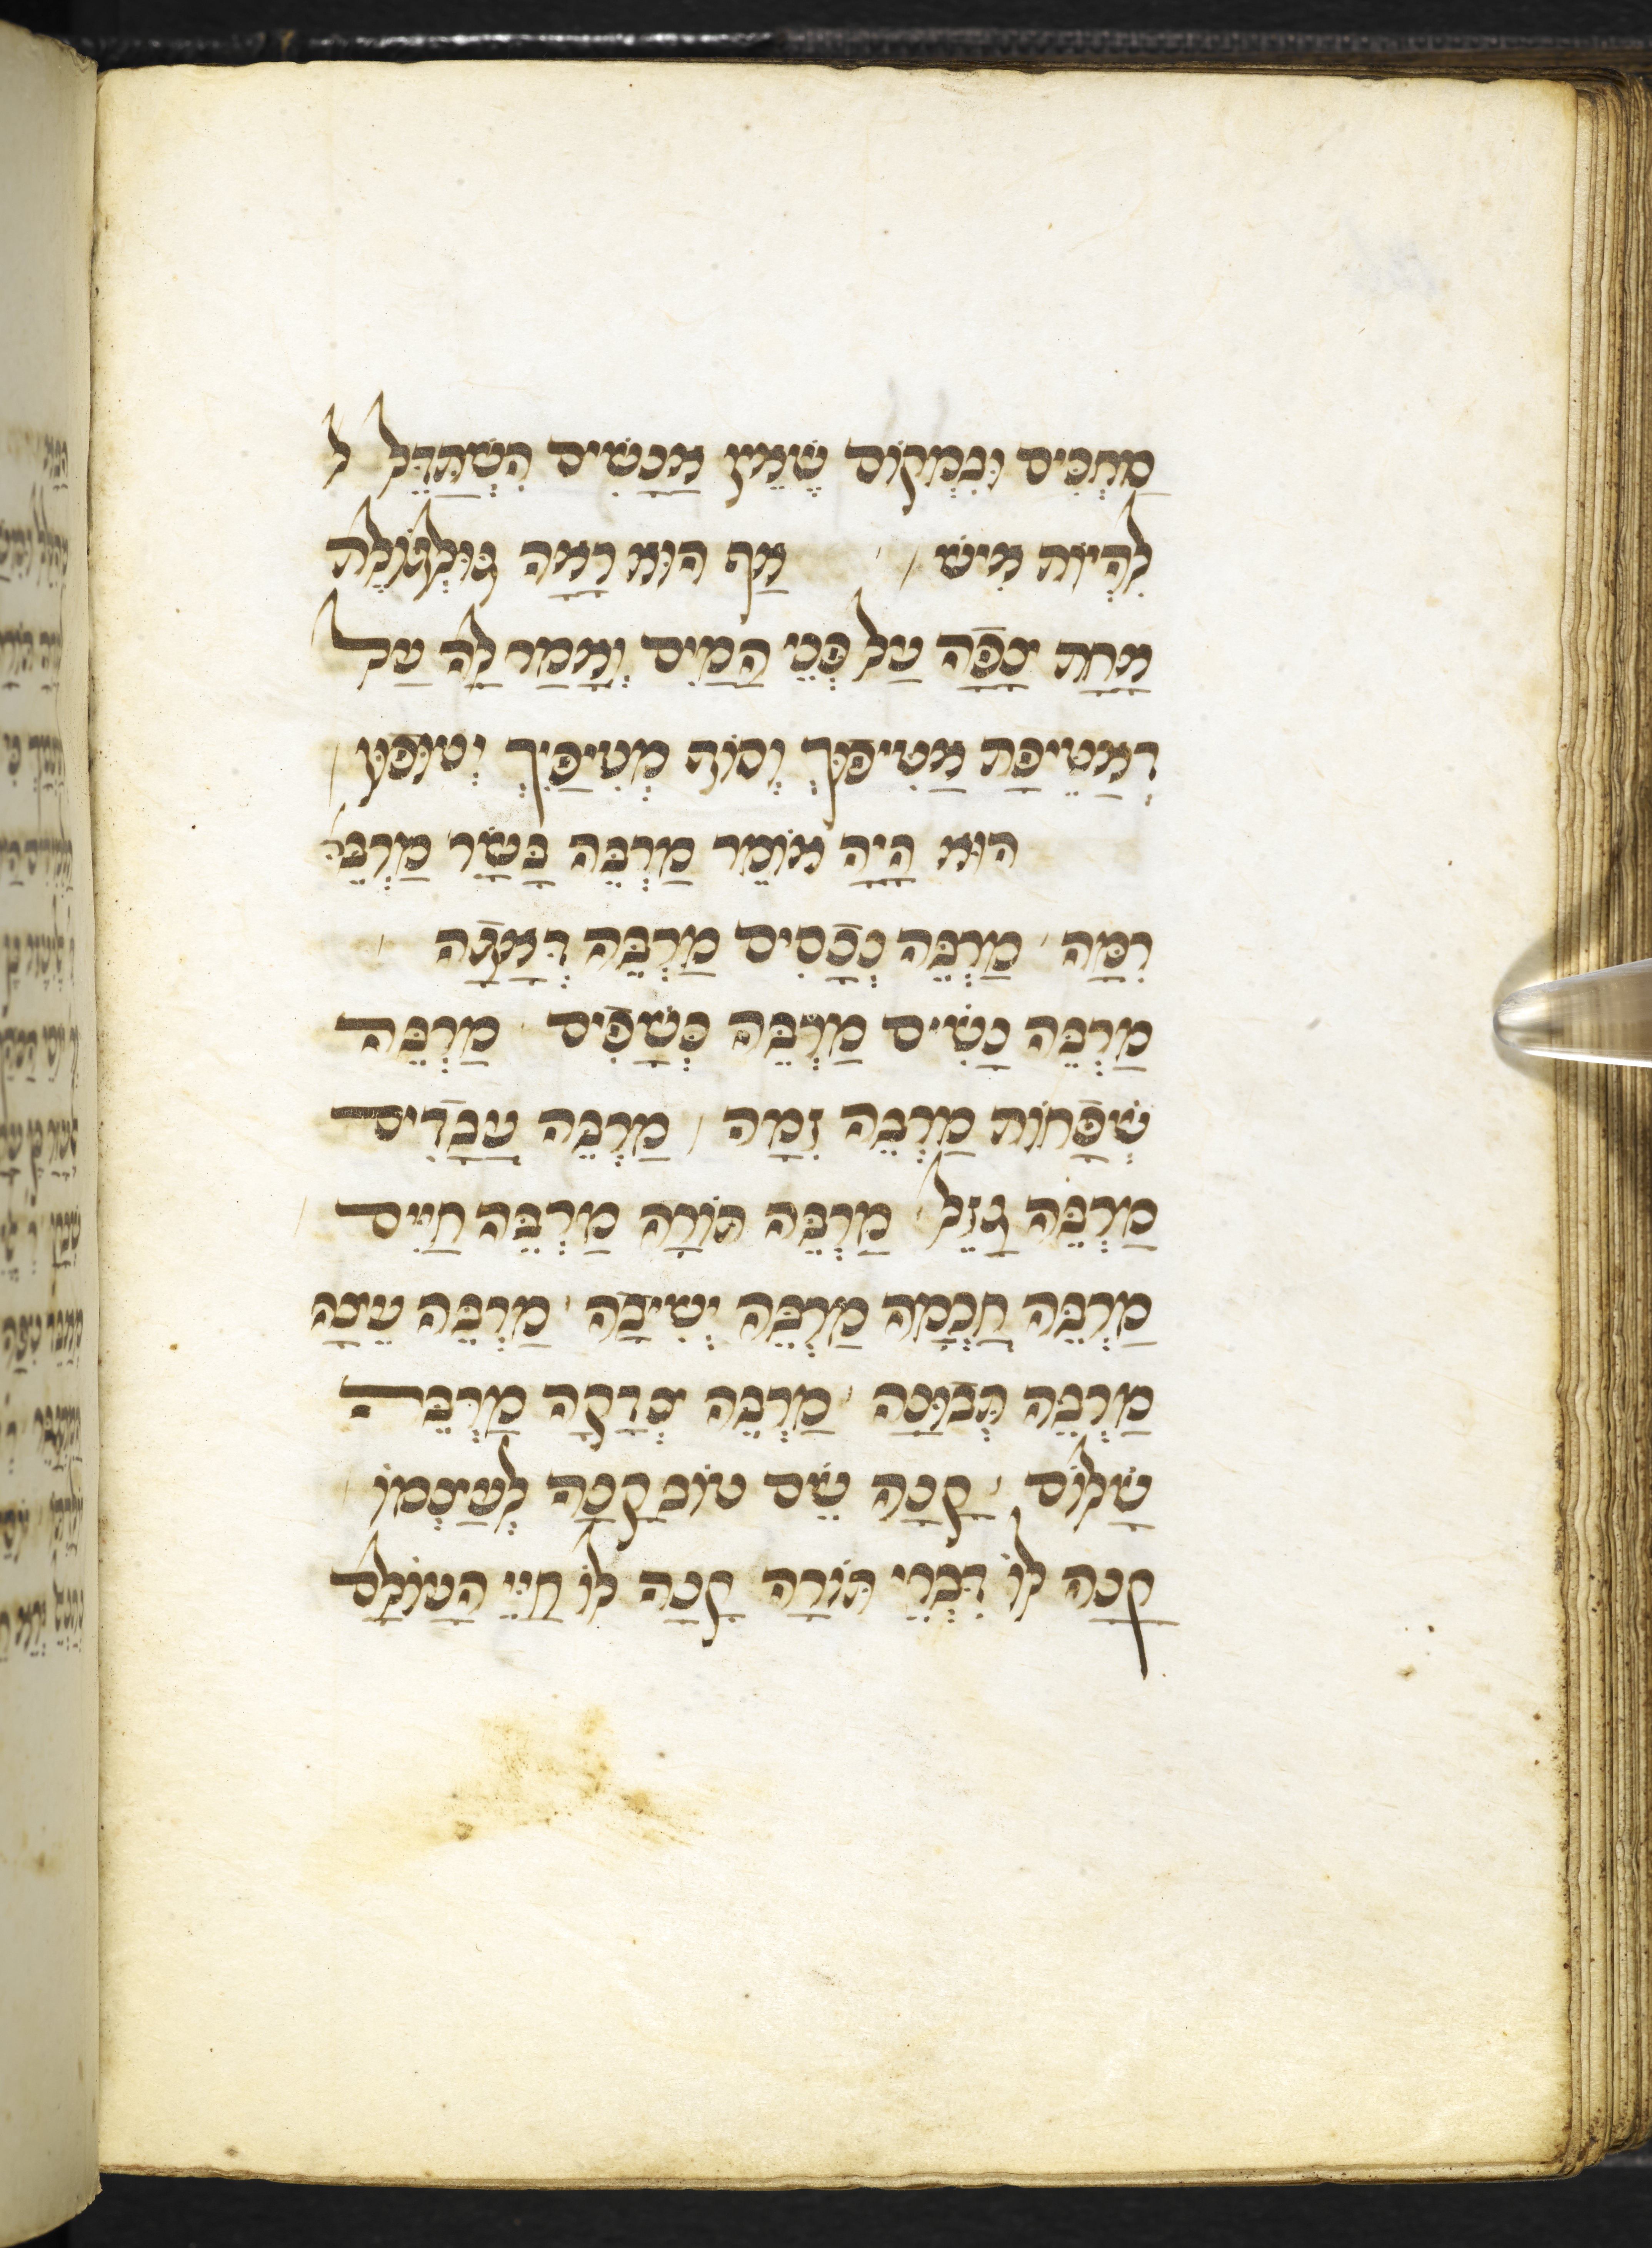 מַחְכִּים וּבִמְקוֹם שֶׁאֵין אֲנָשִׁים הִשְׁתַּדֵּל ל
לִהְיוֹת אִישׁ אַף הוּא רָאָה גּוּלְגּוֹלֶת
אַחַת צָפָה עַל פְּנֵי הַמַיִם וְאָמַר לָהּ עַל
דְאַטֵיפַת אַטִיפוּךְ וְסוֹף מְטִיפַיִךְ יְטוּפוּן
הוּא הָיָה אוֹמֵר מַרְבֶּה בָּשָׂר מַרְבֶּה
רִמָּה מַרְבֶּה נְכָסִים מַרְבֶּה דְּאָגָה
מַרְבֶּה נָשִׁים מַרְבֶּה כְּשָׁפִים מַרְבֶּה
שְׁפָחוֹת מַרְבֶּה זִמָּה מַרְבֶּה עֲבָדִים
מַרְבֶּה גָזֵל מַרְבֶּה תּוֹרָה מַרְבֶּה חַיִּים
מַרְבֶּה חָכְמָה מַרְבֶּה יְשִׁיבָה מַרְבֶּה עֵצָה
מַרְבֶּה תְּבוּנָה מַרְבֶּה צְדָקָה מַרְבֶּה
שָׁלוֹם קָנָה שֵׁם טוֹב קָנָה לְעַצְמוֹ
קָנָה לוֹ דִּבְרֵי תּוֹרָה קָנָה לוֹ חַיֵּי הָעוֹלָם